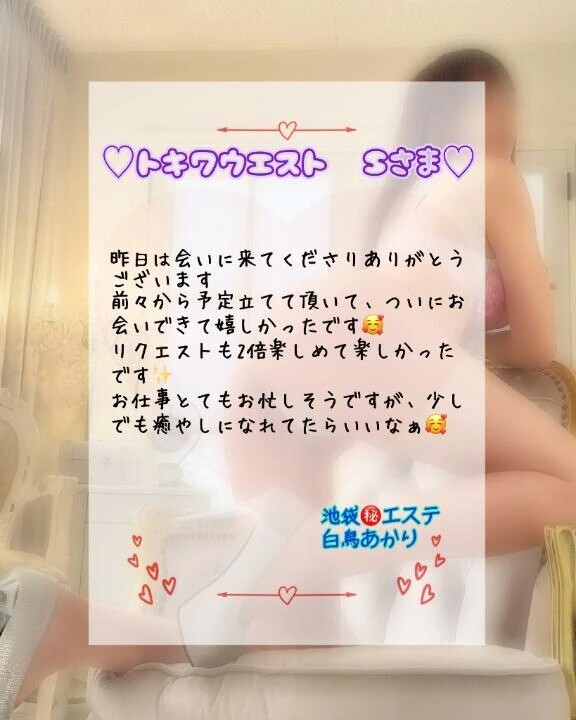 ♡トキワウエスト Sさま♡
昨日は会いに来てくださりありがとう
ございます
前々から予定立てて頂いて、ついにお
会いできて嬉しかったです🥰
リクエストも2倍楽しめて楽しかった
です✨
お仕事とてもお忙しそうですが、少し
でも癒やしになれてたらいいなぁ🥰
池袋㊙エステ
白鳥あかり